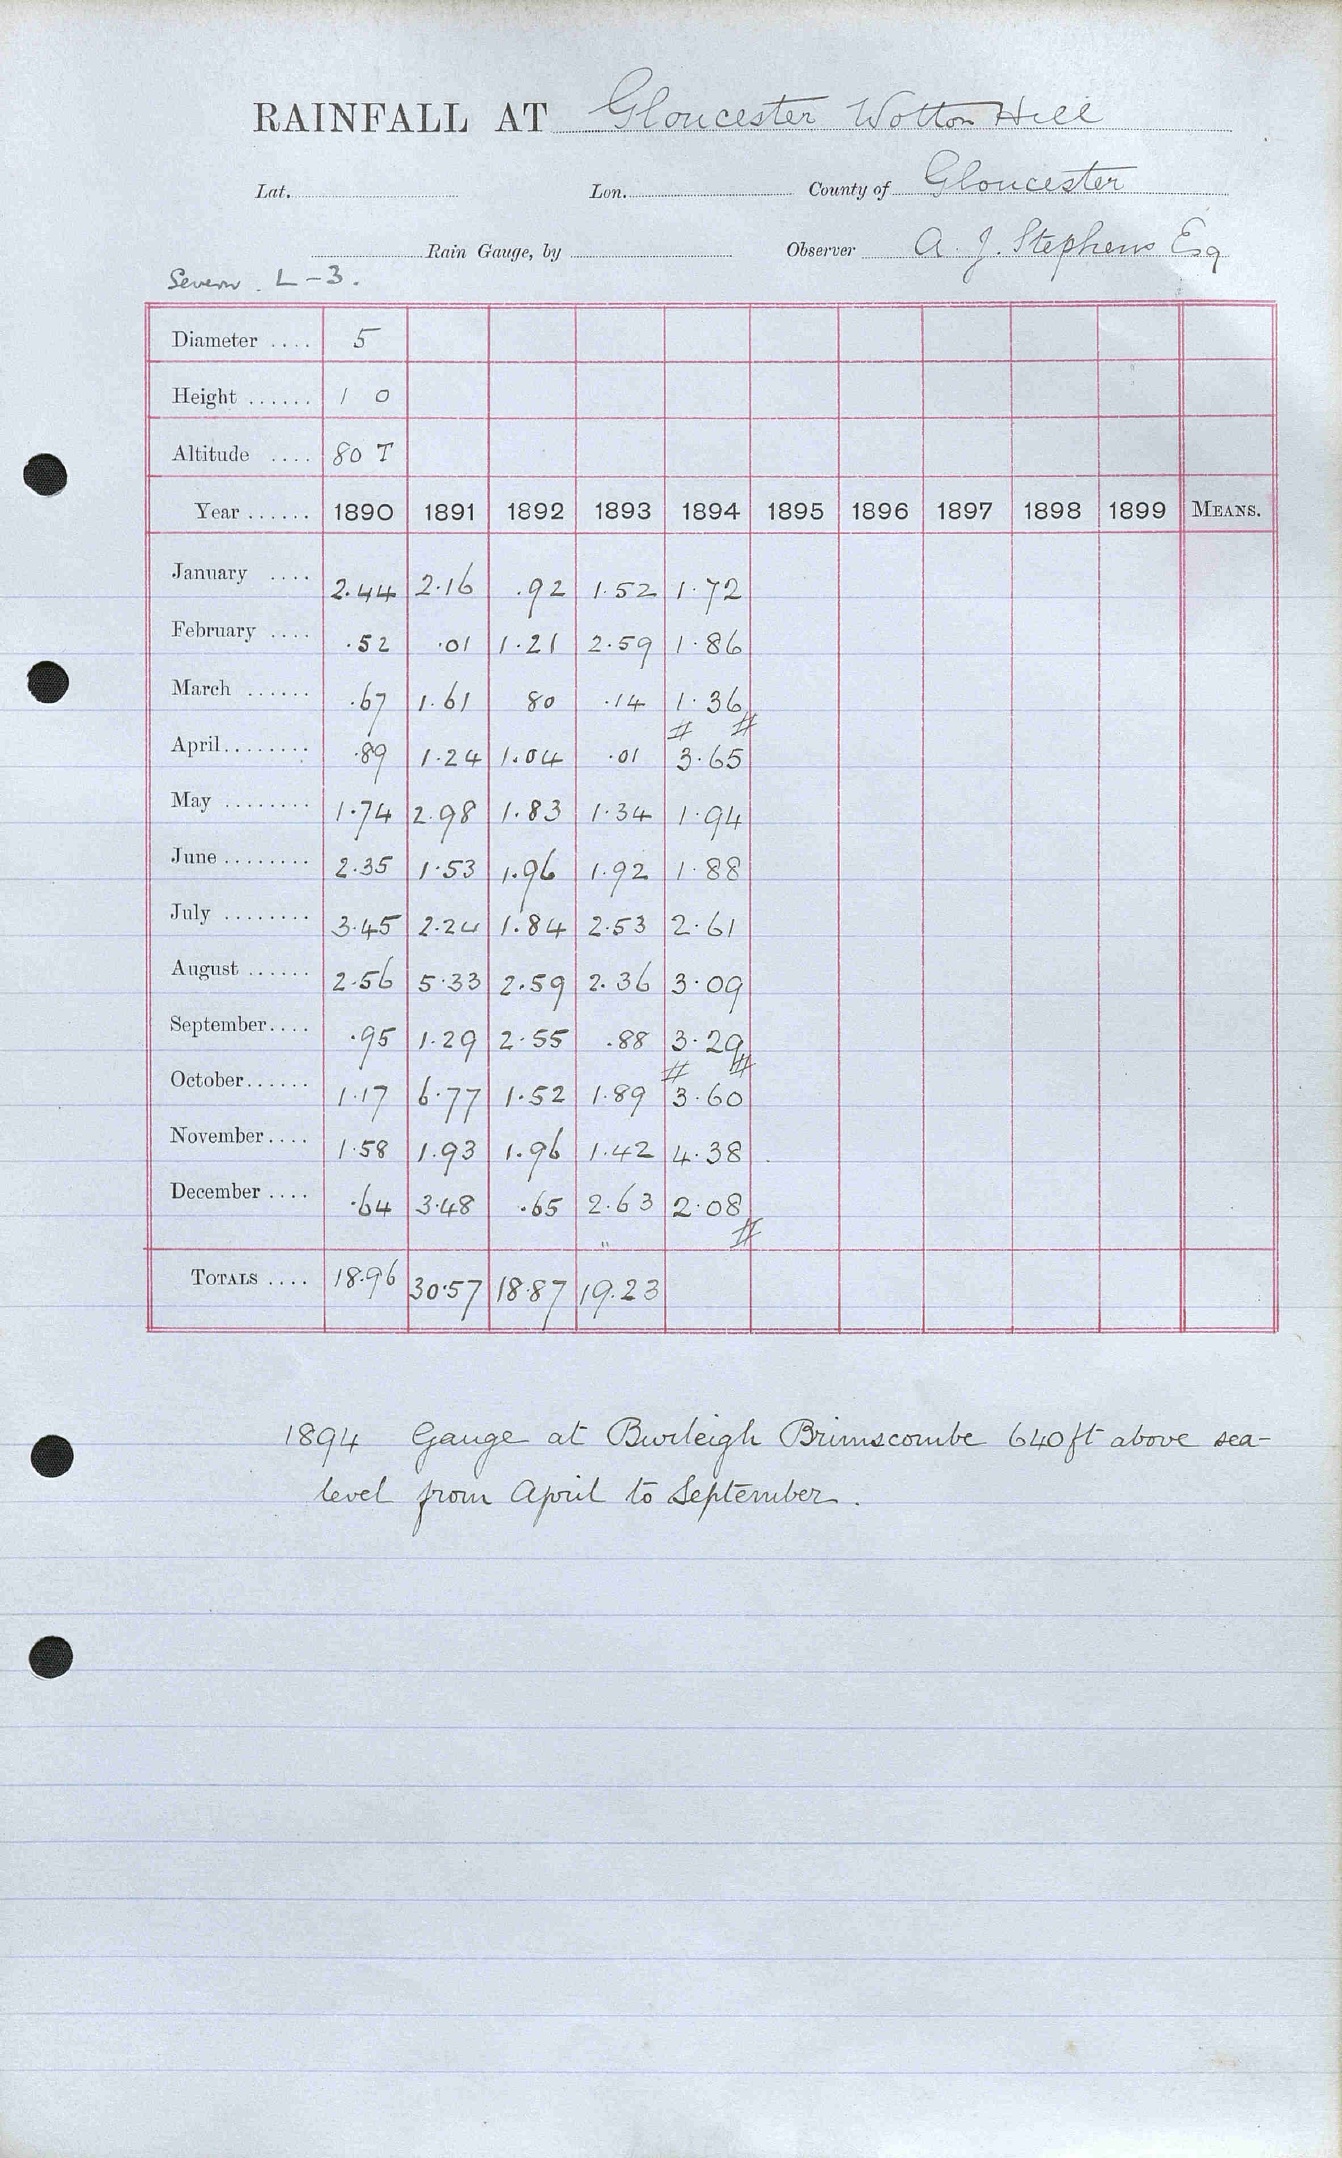 RAINFALL AT Gloucester Wotton Hill
Lat. Lon. County of Gloucester
Rain Gauge, by Observer A. J. Stephens Esq
Severn. L-3.
Diameter .... 5
Height ...... 1 0
Altitude .... 80 T
Year ...... 1890 1891 1892 1893 1894 1895 1896 1897 1898 1899 MEANS.
January .... 2.44 2.16 .92 1.52 1.72
February .... .52 .01 1.21 2.59 1.86
March ...... .67 1.61 80 .14 1.36
# #
April........ .89 1.24 1.04 .01 3.65
May ........ 1.74 2.98 1.83 1.34 1.94
June ........ 2.35 1.53 1.96 1.92 1.88
July ........ 3.45 2.24 1.84 2.53 2.61
August ...... 2.56 5.33 2.59 2.36 3.09
September.... .95 1.29 2.55 .88 3.29
# #
October...... 1.17 6.77 1.52 1.89 3.60
November.... 1.58 1.93 1.96 1.42 4.38
December .... .64 3.48 .65 2.63 2.08
#
TOTALS .... 18.96 30.57 18.87 19.23
1894 Gauge at Burleigh Brimscombe 640ft above sea-
level from April to September.